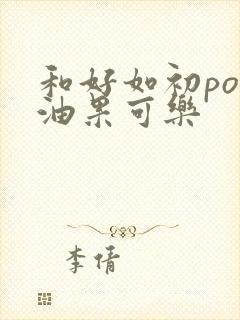 和好如初po
油果可樂
李倩